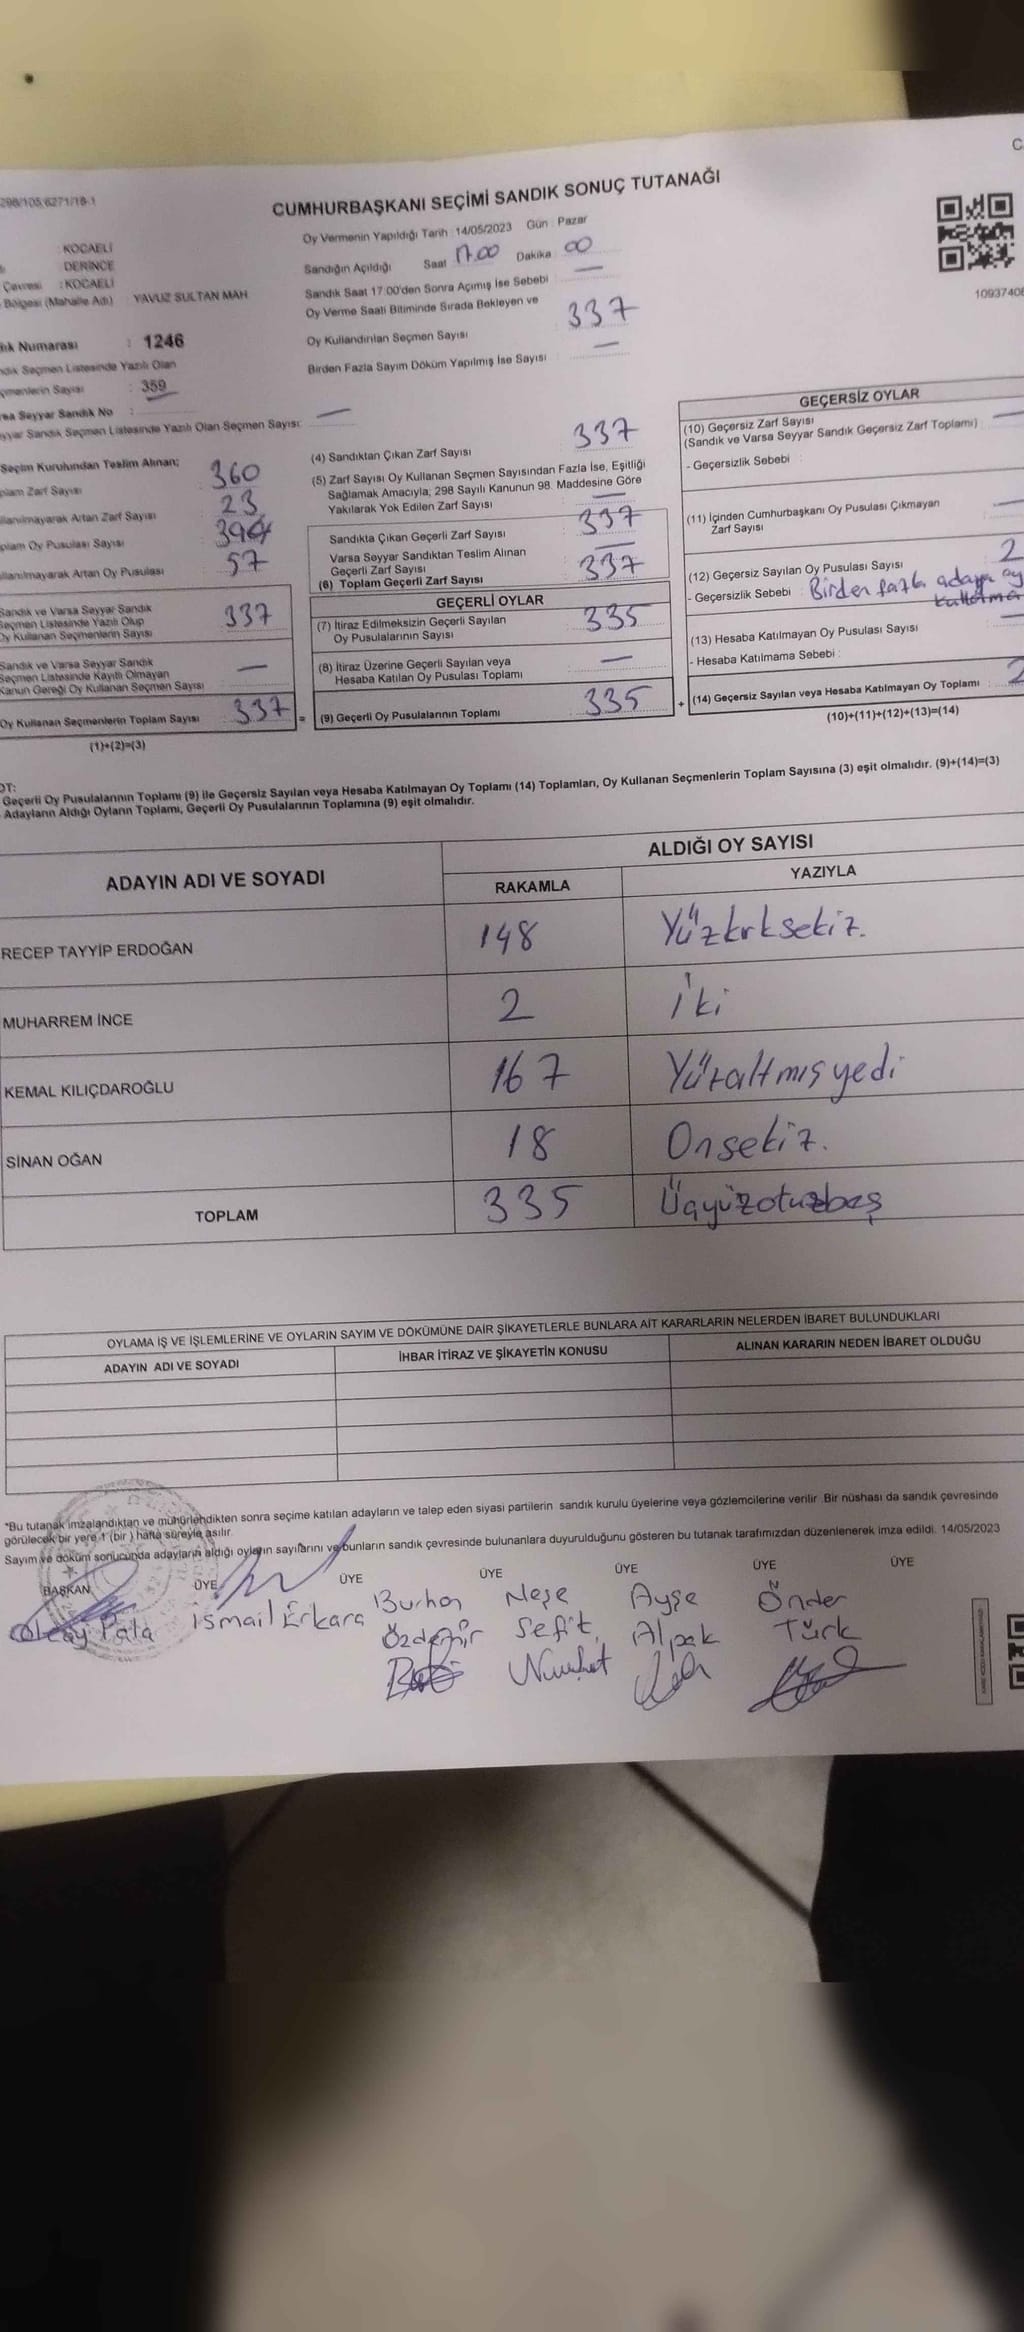 298/105,6271/18-1
CUMHURBAŞKANI SEÇİMİ SANDIK SONUÇ TUTANAĞI
: KOCAELİ
: DERİNCE
Çevresi : KOCAELİ
Bölgesi (Mahalle Adı) : YAVUZ SULTAN MAH
Numarası : 1246
Seçmen Listesinde Yazılı Olan
Sayısı : 359
Seyyar Sandık No :
Sandık Seçmen Listesinde Yazılı Olan Seçmen Sayısı: —
Oy Vermenin Yapıldığı Tarih : 14/05/2023 Gün : Pazar
Sandığın Açıldığı Saat 17.00 Dakika 00
Sandık Saat 17:00'den Sonra Açımış İse Sebebi —
Oy Verme Saati Bitiminde Sırada Bekleyen ve
Oy Kullandırılan Seçmen Sayısı 337
Birden Fazla Sayım Döküm Yapılmış İse Sayısı —
1093740
Seçim Kurulundan Teslim Alınan;
Zarf Sayısı 360
Artan Zarf Sayısı 23
Oy Pusulası Sayısı 394
Artan Oy Pusulası 57
Sandık ve Varsa Seyyar Sandık
Seçmen Listesinde Yazılı Olup
Oy Kullanan Seçmenlerin Sayısı 337
Sandık ve Varsa Seyyar Sandık
Seçmen Listesinde Kayıtlı Olmayan
Kanun Gereği Oy Kullanan Seçmen Sayısı —
Oy Kullanan Seçmenlerin Toplam Sayısı 337 =
(1)+(2)=(3)
(4) Sandıktan Çıkan Zarf Sayısı 337
(5) Zarf Sayısı Oy Kullanan Seçmen Sayısından Fazla İse, Eşitliği
Sağlamak Amacıyla; 298 Sayılı Kanunun 98. Maddesine Göre
Yakılarak Yok Edilen Zarf Sayısı —
Sandıkta Çıkan Geçerli Zarf Sayısı 337
Varsa Seyyar Sandıktan Teslim Alınan
Geçerli Zarf Sayısı —
(6) Toplam Geçerli Zarf Sayısı 337
GEÇERLİ OYLAR
(7) İtiraz Edilmeksizin Geçerli Sayılan
Oy Pusulalarının Sayısı 335
(8) İtiraz Üzerine Geçerli Sayılan veya
Hesaba Katılan Oy Pusulası Toplamı —
(9) Geçerli Oy Pusulalarının Toplamı 335 +
GEÇERSİZ OYLAR
(10) Geçersiz Zarf Sayısı
(Sandık ve Varsa Seyyar Sandık Geçersiz Zarf Toplamı) —
- Geçersizlik Sebebi :
(11) İçinden Cumhurbaşkanı Oy Pusulası Çıkmayan
Zarf Sayısı —
(12) Geçersiz Sayılan Oy Pusulası Sayısı 2
- Geçersizlik Sebebi : Birden fazla adaya oy
(13) Hesaba Katılmayan Oy Pusulası Sayısı —
- Hesaba Katılmama Sebebi :
(14) Geçersiz Sayılan veya Hesaba Katılmayan Oy Toplamı 2
(10)+(11)+(12)+(13)=(14)
Geçerli Oy Pusulalarının Toplamı (9) ile Geçersiz Sayılan veya Hesaba Katılmayan Oy Toplamı (14) Toplamları, Oy Kullanan Seçmenlerin Toplam Sayısına (3) eşit olmalıdır. (9)+(14)=(3)
Adayların Aldığı Oyların Toplamı, Geçerli Oy Pusulalarının Toplamına (9) eşit olmalıdır.
ADAYIN ADI VE SOYADI
ALDIĞI OY SAYISI
RAKAMLA YAZIYLA
RECEP TAYYİP ERDOĞAN 148 Yüzkırksekiz.
MUHARREM İNCE 2 İki
KEMAL KILIÇDAROĞLU 167 Yüzaltmışyedi
SİNAN OĞAN 18 Onsekiz.
TOPLAM 335 Üçyüzotuzbeş
OYLAMA İŞ VE İŞLEMLERİNE VE OYLARIN SAYIM VE DÖKÜMÜNE DAİR ŞİKAYETLERLE BUNLARA AİT KARARLARIN NELERDEN İBARET BULUNDUKLARI
ADAYIN ADI VE SOYADI İHBAR İTİRAZ VE ŞİKAYETİN KONUSU ALINAN KARARIN NEDEN İBARET OLDUĞU
*Bu tutanak imzalandıktan ve mühürlendikten sonra seçime katılan adayların ve talep eden siyasi partilerin sandık kurulu üyelerine veya gözlemcilerine verilir. Bir nüshası da sandık çevresinde
görülecek bir yere 1 (bir ) hafta süreyle asılır.
Sayım ve döküm sonucunda adayların aldığı oyların sayılarını ve bunların sandık çevresinde bulunanlara duyurulduğunu gösteren bu tutanak tarafımızdan düzenlenerek imza edildi. 14/05/2023
BAŞKAN ÜYE ÜYE ÜYE ÜYE ÜYE ÜYE
Pala İsmail Erkara Burhan Neşe Ayşe Önder
Özdemir Sefit Alpak Türk